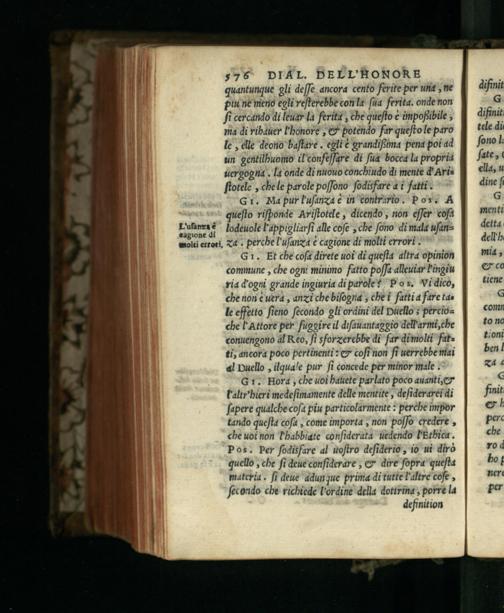 576 DIAL. DELL'HONORE
quantunque gli desse ancora cento ferite per una, ne
piu ne meno egli resterebbe con la sua ferita. onde non
si cercando di leuar la ferita, che questo è impossibile,
ma di rihauer l'honore, & potendo far questo le paro
le, elle deono bastare. egli è grandissima pena poi ad
un gentilhuomo il confessare di sua bocca la propria
uergogna. la onde di nuouo conchiudo di mente d'Ari=
stotele, che le parole possono sodisfare a i fatti.
GI. Ma pur l'usanza è in contrario. Pos. A
questo risponde Aristotele, dicendo, non esser cosa
lodeuole l'appigliarsi alle cose, che sono di mala usan=
za. perche l'usanza è cagione di molti errori.
L'usanza è
cagione di
molti errori.
GI. Et che cosa direte uoi di questa altra opinion
commune, che ogni minimo fatto possa alleuiar l'ingiu
ria d'ogni grande ingiuria di parole? Pos. Vi dico,
che non è uera, anzi che bisogna, che i fatti a fare ta=
le effetto sieno secondo gli ordini del Duello; percio=
che l'Attore per fuggire il disauantaggio dell'armi, che
conuengono al Reo, si sforzerebbe di far di molti fat=
ti, ancora poco pertinenti: & cosi non si uerrebbe mai
al Duello, ilquale pur si concede per minor male.
GI. Hora, che uoi hauete parlato poco auanti, &
l'altr'hieri medesimamente delle mentite, desiderarei di
sapere qualche cosa piu particolarmente: perche impor
tando questa cosa, come importa, non posso credere,
che uoi non l'habbiate considerata uedendo l'Ethica.
Pos. Per sodisfare al uostro desiderio, io ui dirò
quello, che si deue considerare, & dire sopra questa
materia. si deue adunque prima di tutte l'altre cose,
secondo che richiede l'ordine della dottrina, porre la
definition